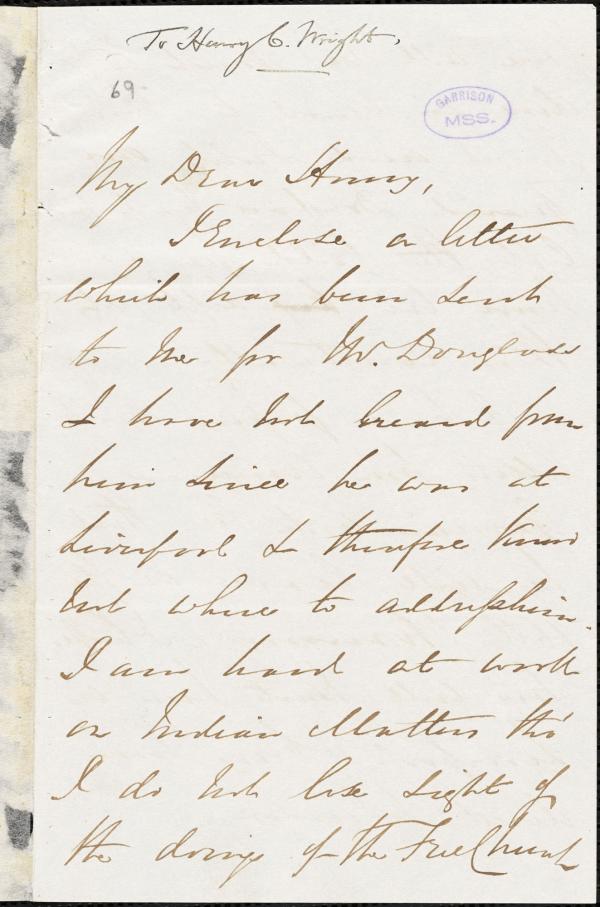 To Henry C. Wright,
69
GARRISON
MSS.
My Dear Henry,
I Enclose a letter
which has been sent
to me for Mr. Douglass
I have not heard from
him since he was at
Liverpool & therefore know
not where to address him.
I am hard at work
on Indian Matters tho'
I do not lose sight of
the doings of the Free Church